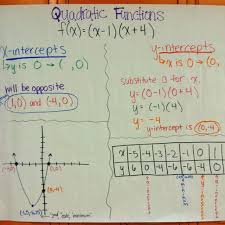 Quadratic Functions
f(x)=(x-1)(x+4)
x-intercepts
↳y is 0 → ( ,0)
will be opposite
(1,0) and (-4,0)
y-intercepts
↳x is 0 → (0,
substitute 0 for x.
y=(0-1)(0+4)
y=(-1)(4)
y=-4
y-intercept is (0,-4)
x -5 -4 -3 -2 -1 0 1
y 6 0 -4 -6 -6 -4 0
(-4,0)
(1,0)
(0,-4)